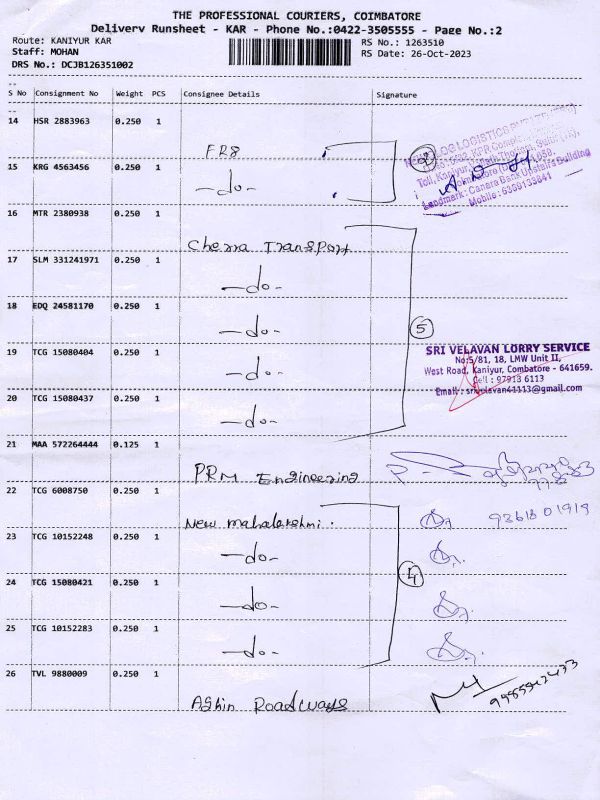 THE PROFESSIONAL COURIERS, COIMBATORE
Delivery Runsheet - KAR - Phone No.:0422-3505555 - Page No.:2
Route: KANIYUR KAR
RS No.: 1263510
Staff: MOHAN
RS Date: 26-Oct-2023
DRS No.: DCJB126351002
S No Consignment No Weight PCS Consignee Details Signature
14 HSR 2883963 0.250 1
FR8
15 KRG 4563456 0.250 1
-do-
2
Landmark: Canara Bank Upstairs Building
Mobile:
16 MTR 2380938 0.250 1
Cherra Transport
17 SLM 331241971 0.250 1
-do-
18 EDQ 24581170 0.250 1
-do-
5
19 TCG 15080404 0.250 1
-do-
SRI VELAVAN LORRY SERVICE
No:5/81, 18, LMW Unit II,
West Road, Kaniyur, Combatore - 641659.
Cell : 97913 6113
Email : srivelavan41113@gmail.com
20 TCG 15080437 0.250 1
-do-
21 MAA 572264444 0.125 1
PRM Engineering
22 TCG 6008750 0.250 1
New mahalakshmi.
23 TCG 10152248 0.250 1
-do-
4
24 TCG 15080421 0.250 1
-do-
25 TCG 10152283 0.250 1
-do-
26 TVL 9880009 0.250 1
Ashin Roadways